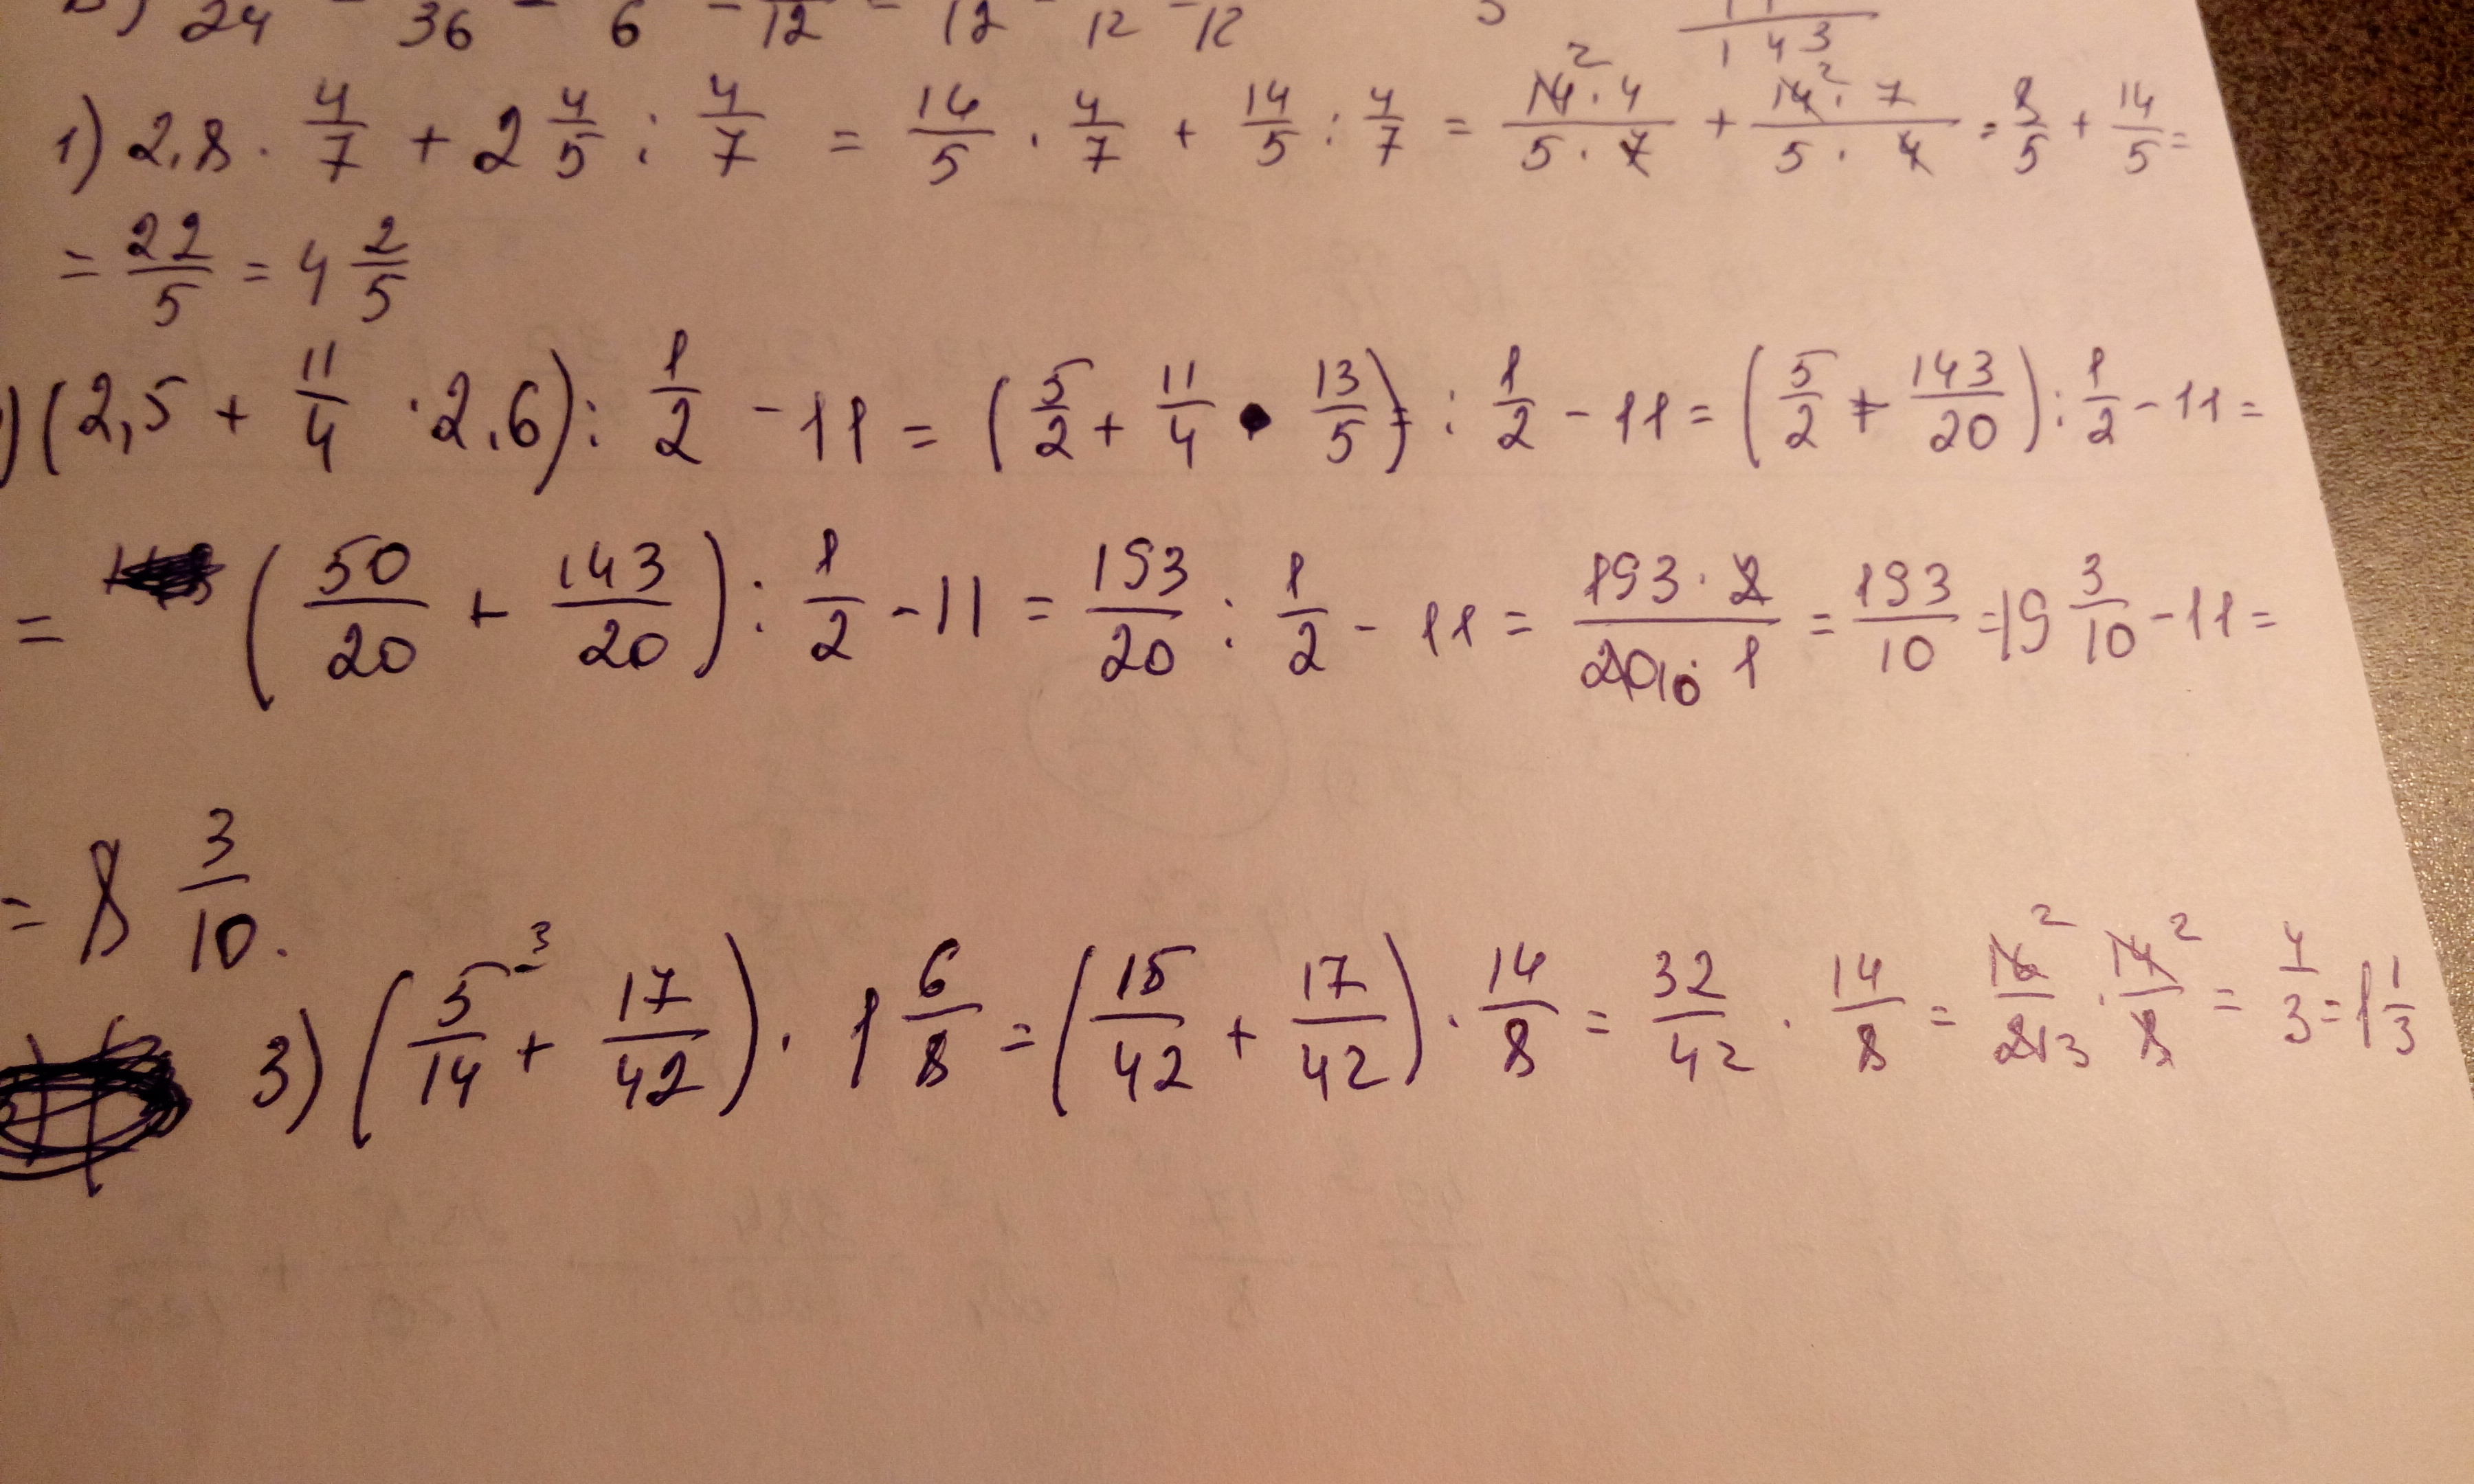 24 36 6 12 12 12 12
143
1) 2.8 · 4/7 + 2 4/5 : 4/7 = 14/5 · 4/7 + 14/5 : 4/7 = 14² · 4 / 5 · 7 + 14² · 7 / 5 · 4 = 8/5 + 14/5 =
= 22/5 = 4 2/5
) (2,5 + 11/4 · 2.6) : 1/2 - 11 = (5/2 + 11/4 · 13/5) : 1/2 - 11 = (5/2 + 143/20) : 1/2 - 11 =
= (50/20 + 143/20) : 1/2 - 11 = 193/20 : 1/2 - 11 = 193 · 2 / 20 10 · 1 = 193/10 = 19 3/10 - 11 =
= 8 3/10.
3) (5/14 ³ + 17/42) · 1 6/8 = (15/42 + 17/42) · 14/8 = 32/42 · 14/8 = 16² / 21 3 · 14² / 8 = 4/3 = 1 1/3